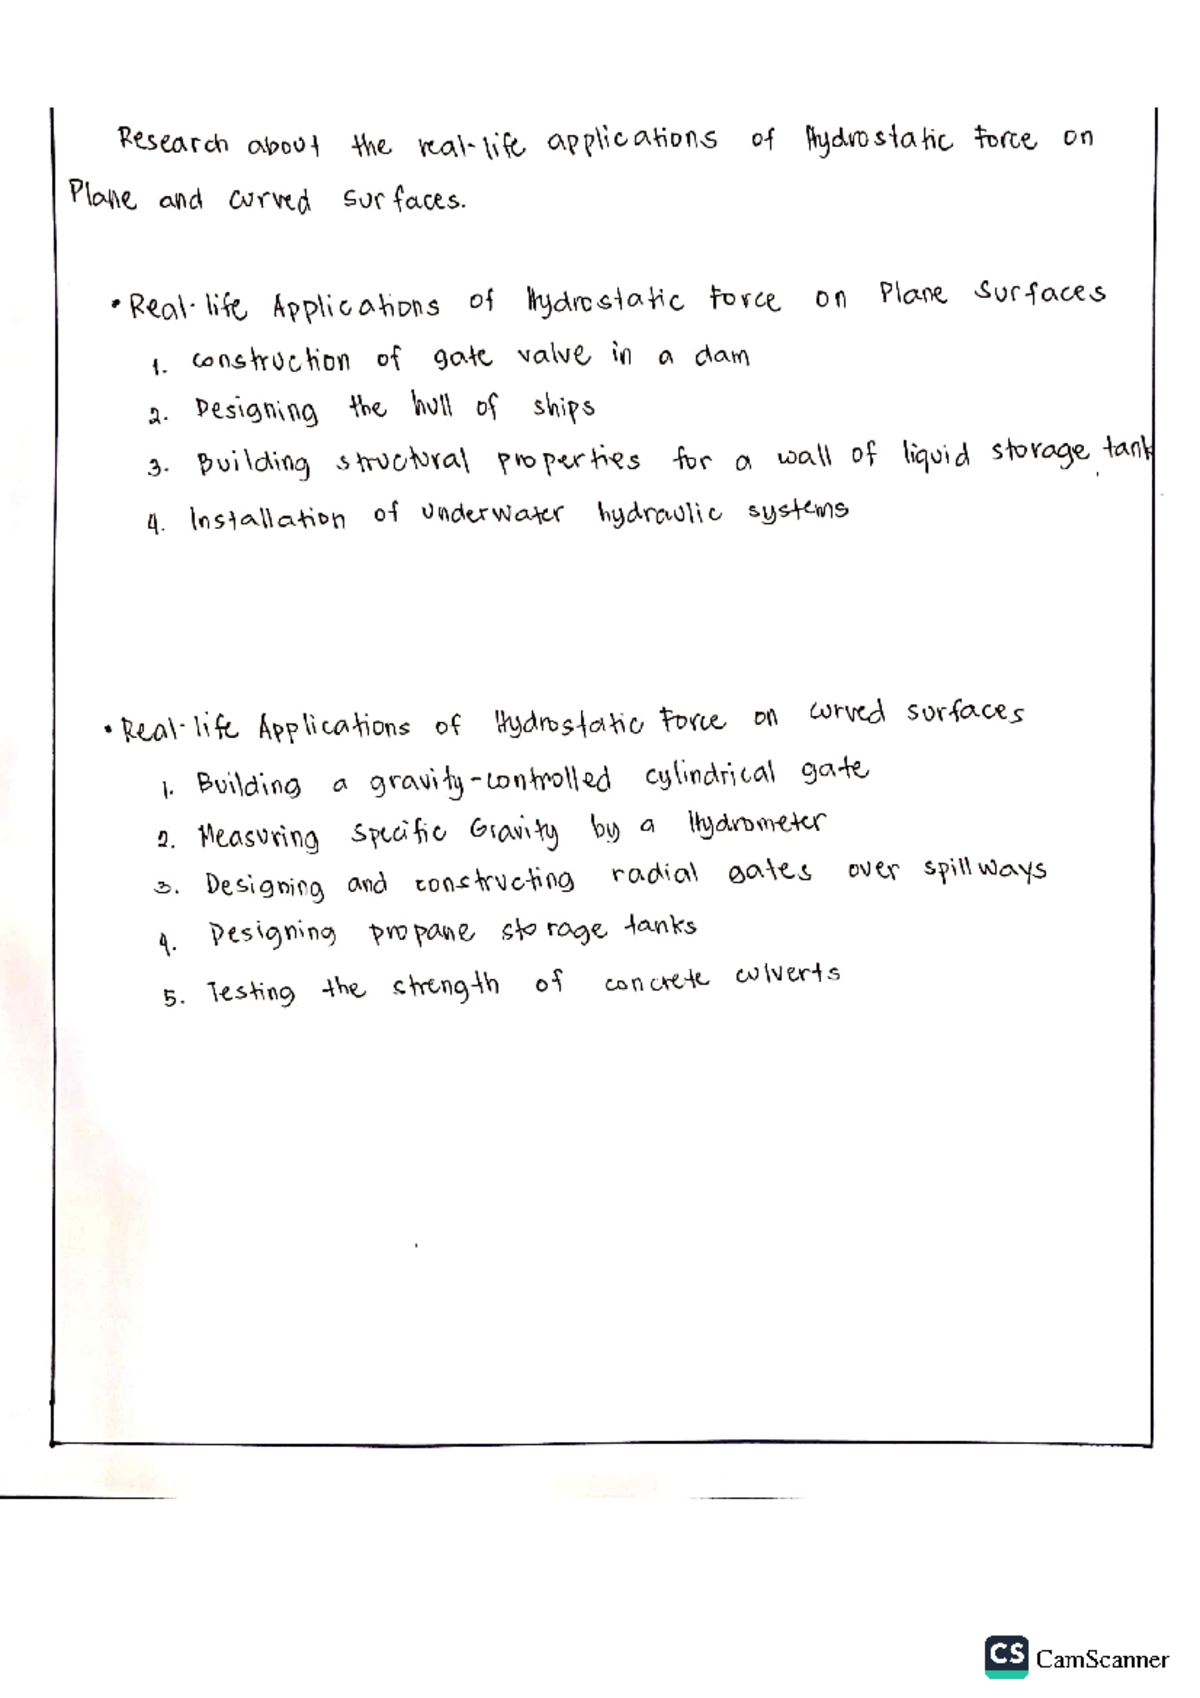 Research about the real-life applications of Hydrostatic Force on
Plane and curved surfaces.
• Real-life Applications of Hydrostatic Force on Plane Surfaces
1. construction of gate valve in a dam
2. Designing the hull of ships
3. Building structural properties for a wall of liquid storage tank
4. Installation of underwater hydraulic systems
• Real-life Applications of Hydrostatic Force on curved surfaces
1. Building a gravity-controlled cylindrical gate
2. Measuring Specific Gravity by a Hydrometer
3. Designing and constructing radial gates over spillways
4. Designing propane storage tanks
5. Testing the strength of concrete culverts
CS CamScanner